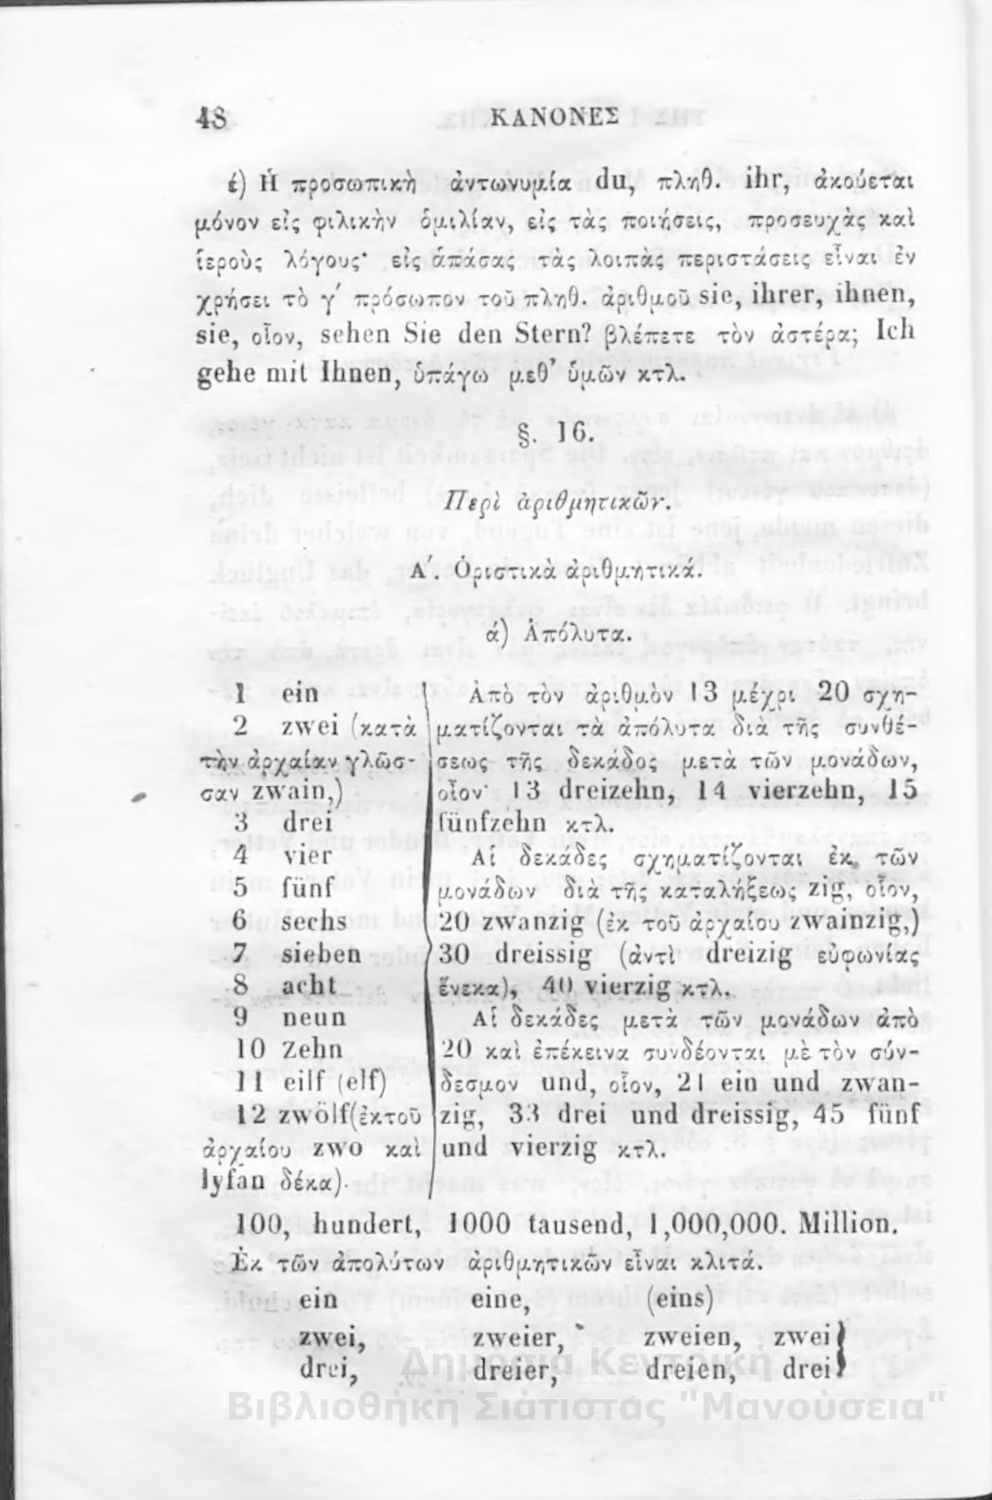 48 ΚΑΝΟΝΕΣ
έ) Ἡ προσωπικὴ ἀντωνυμία du, πληθ. ihr, ἀκούεται
μόνον εἰς φιλικὴν ὁμιλίαν, εἰς τὰς ποιήσεις, προσευχὰς καὶ
ἱεροὺς λόγους· εἰς ἁπάσας τὰς λοιπὰς περιστάσεις εἶναι ἐν
χρήσει τὸ γ΄ πρόσωπον τοῦ πληθ. ἀριθμοῦ sie, ihrer, ihnen,
sie, οἷον, sehen Sie den Stern? βλέπετε τὸν ἀστέρα; Ich
gehe mit Ihnen, ὑπάγω μεθ᾽ ὑμῶν κτλ.
§. 16.
Περὶ ἀριθμητικῶν.
Α΄. Ὁριστικὰ ἀριθμητικά.
ά) Ἀπόλυτα.
1 ein
2 zwei (κατὰ
τὴν ἀρχαίαν γλῶσ-
σαν zwain,)
3 drei
4 vier
5 fünf
6 sechs
7 sieben
8 acht
9 neun
10 Zehn
11 eilf (elf)
12 zwölf(ἐκτοῦ
ἀρχαίου zwo καὶ
lyfan δέκα).
Ἀπὸ τὸν ἀριθμὸν 13 μέχρι 20 σχη-
ματίζονται τὰ ἀπόλυτα διὰ τῆς συνθέ-
σεως τῆς δεκάδος μετὰ τῶν μονάδων,
οἷον· 13 dreizehn, 14 vierzehn, 15
fünfzehn κτλ.
Αἱ δεκάδες σχηματίζονται ἐκ τῶν
μονάδων διὰ τῆς καταλήξεως zig, οἷον,
20 zwanzig (ἐκ τοῦ ἀρχαίου zwainzig,)
30 dreissig (ἀντὶ dreizig εὐφωνίας
ἕνεκα), 40 vierzig κτλ.
Αἱ δεκάδες μετὰ τῶν μονάδων ἀπὸ
20 καὶ ἐπέκεινα συνδέονται μὲ τὸν σύν-
δεσμον und, οἷον, 21 ein und zwan-
zig, 33 drei und dreissig, 45 fünf
und vierzig κτλ.
100, hundert, 1000 tausend, 1,000,000. Million.
Ἐκ τῶν ἀπολύτων ἀριθμητικῶν εἶναι κλιτά.
ein eine, (eins)
zwei, zweier, zweien, zwei
drei, dreier, dreien, drei
Δημόσια Κεντρική
Βιβλιοθήκη Σιάτιστας "Μανούσεια"